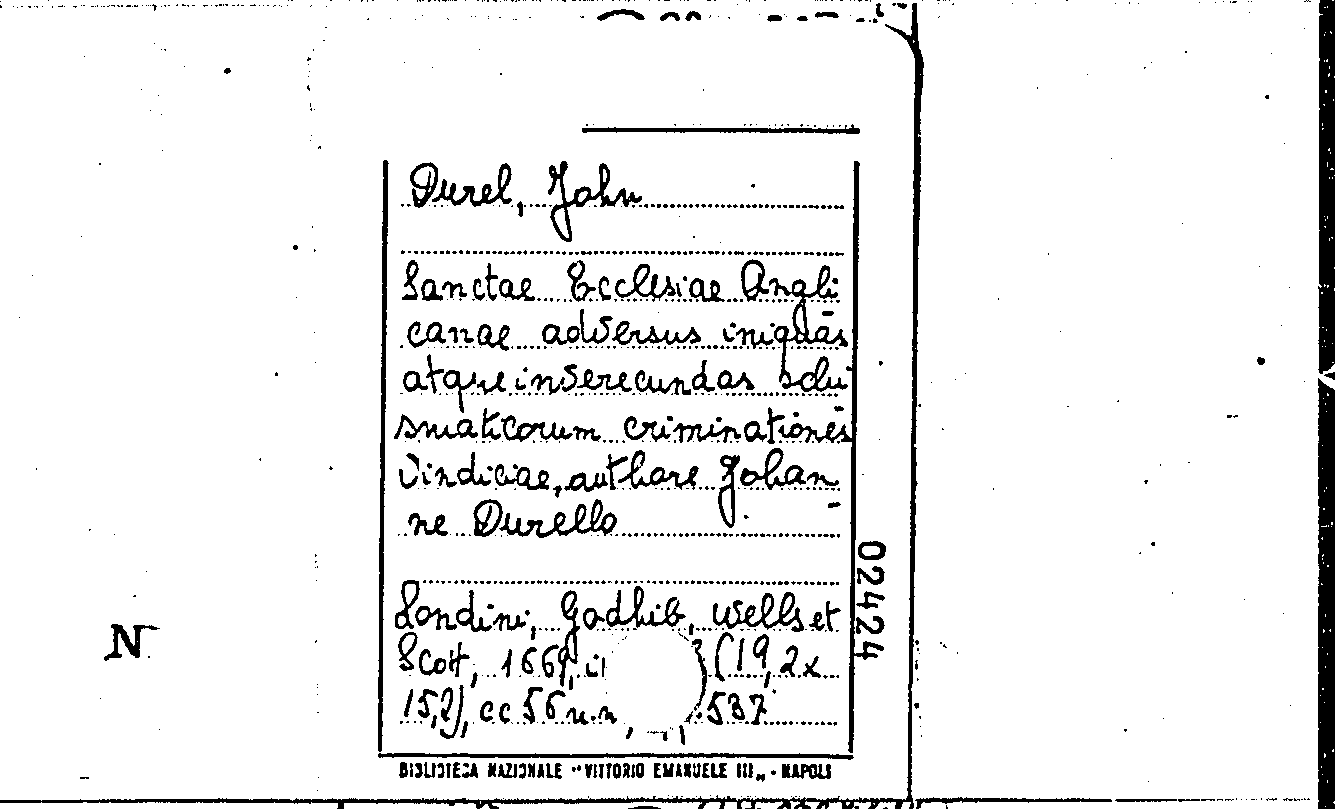 Durel, John
Sanctae Ecclesiae Angli
canae adversus iniquas
atque inverecundas schi
smaticorum criminationes
Vindiciae, authore Johan
ne Durello
Londini, Godhib, Wells et
Scott, 1669, i (19,2x
15,2), cc 56 n.n 537
02424
N
BIBLIOTECA NAZIONALE "VITTORIO EMANUELE III„ - NAPOLI